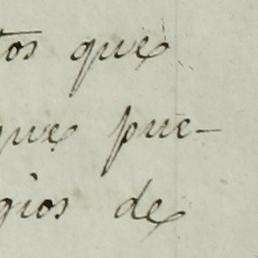 tos que
que pue-
gios de